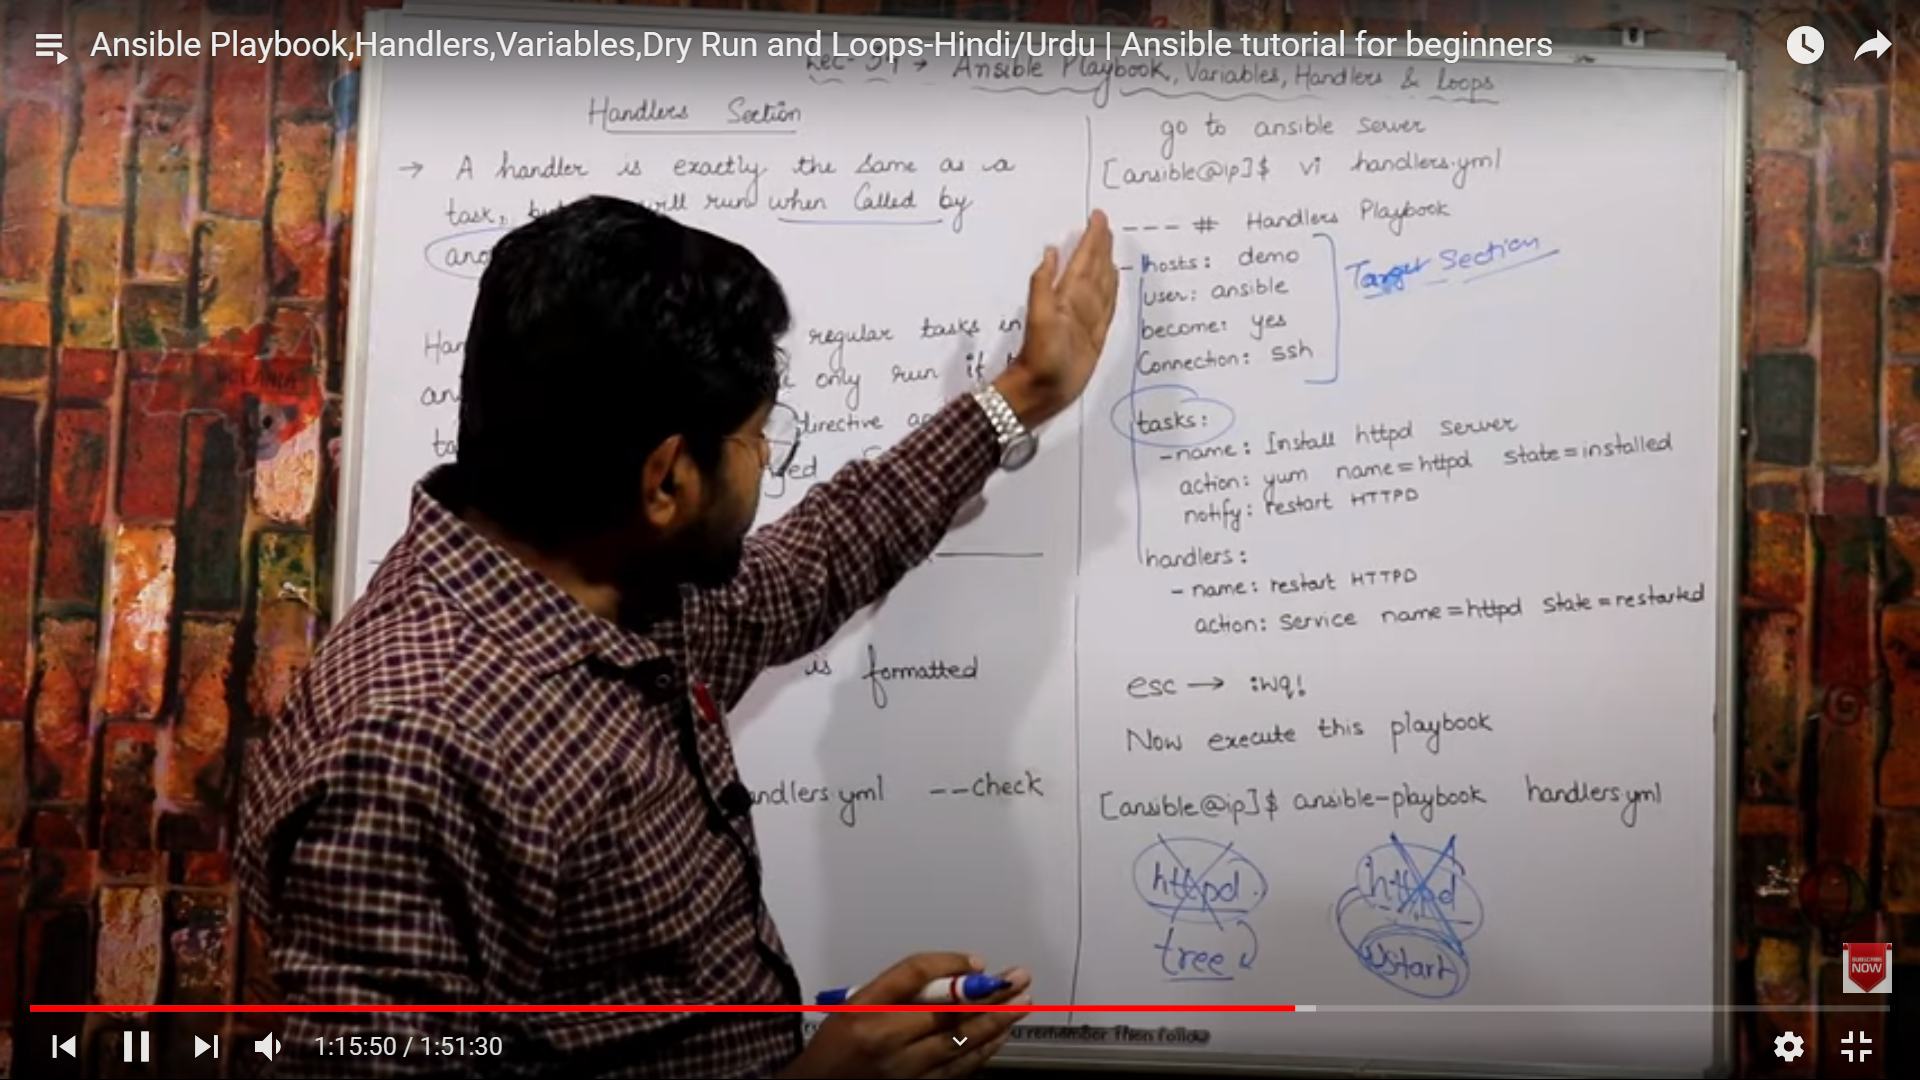 Ansible Playbook,Handlers,Variables,Dry Run and Loops-Hindi/Urdu | Ansible tutorial for beginners
Ansible Playbook, Variables, Handlers & Loops
Handlers Section
→ A handler is exactly the same as a
task, will run when Called by
regular tasks in
only run if
directive
is formatted
--check
go to ansible Server
[ansible@ip]$ vi handlers.yml
--- # Handlers Playbook
- hosts: demo
user: ansible
become: yes
Connection: ssh
Target Section
tasks:
- name: Install httpd server
action: yum name=httpd state=installed
notify: restart HTTPD
handlers:
- name: restart HTTPD
action: service name=httpd state=restarted
esc → :wq!
Now execute this playbook
[ansible@ip]$ ansible-playbook handlers.yml
httpd
tree
httpd
start
SUBSCRIBE
NOW
remember Then Follow
1:15:50 / 1:51:30